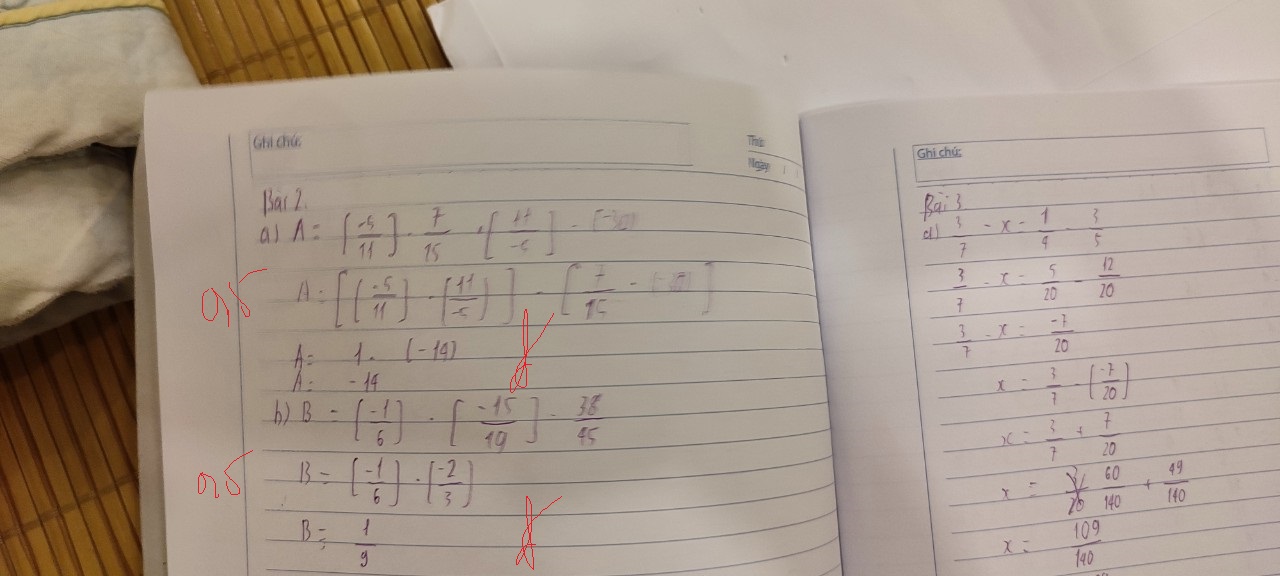 Ghi chú:
Thứ:
Ngày: / /
Bài 2.
a) A = [-5/11] . 7/15 . [11/-5] . (-30)
0,5
A = [(-5/11) . (11/-5)] . [7/15 . (-30)]
A = 1 . (-14)
A = -14
b) B = [-1/6] . [-15/19] . 38/45
0,5
B = [-1/6] . [-2/3]
B = 1/9
Ghi chú:
Bài 3
a) 3/7 - x = 1/4 - 3/5
3/7 - x = 5/20 - 12/20
3/7 - x = -7/20
x = 3/7 - [-7/20]
x = 3/7 + 7/20
x = 60/140 + 49/140
x = 109/140